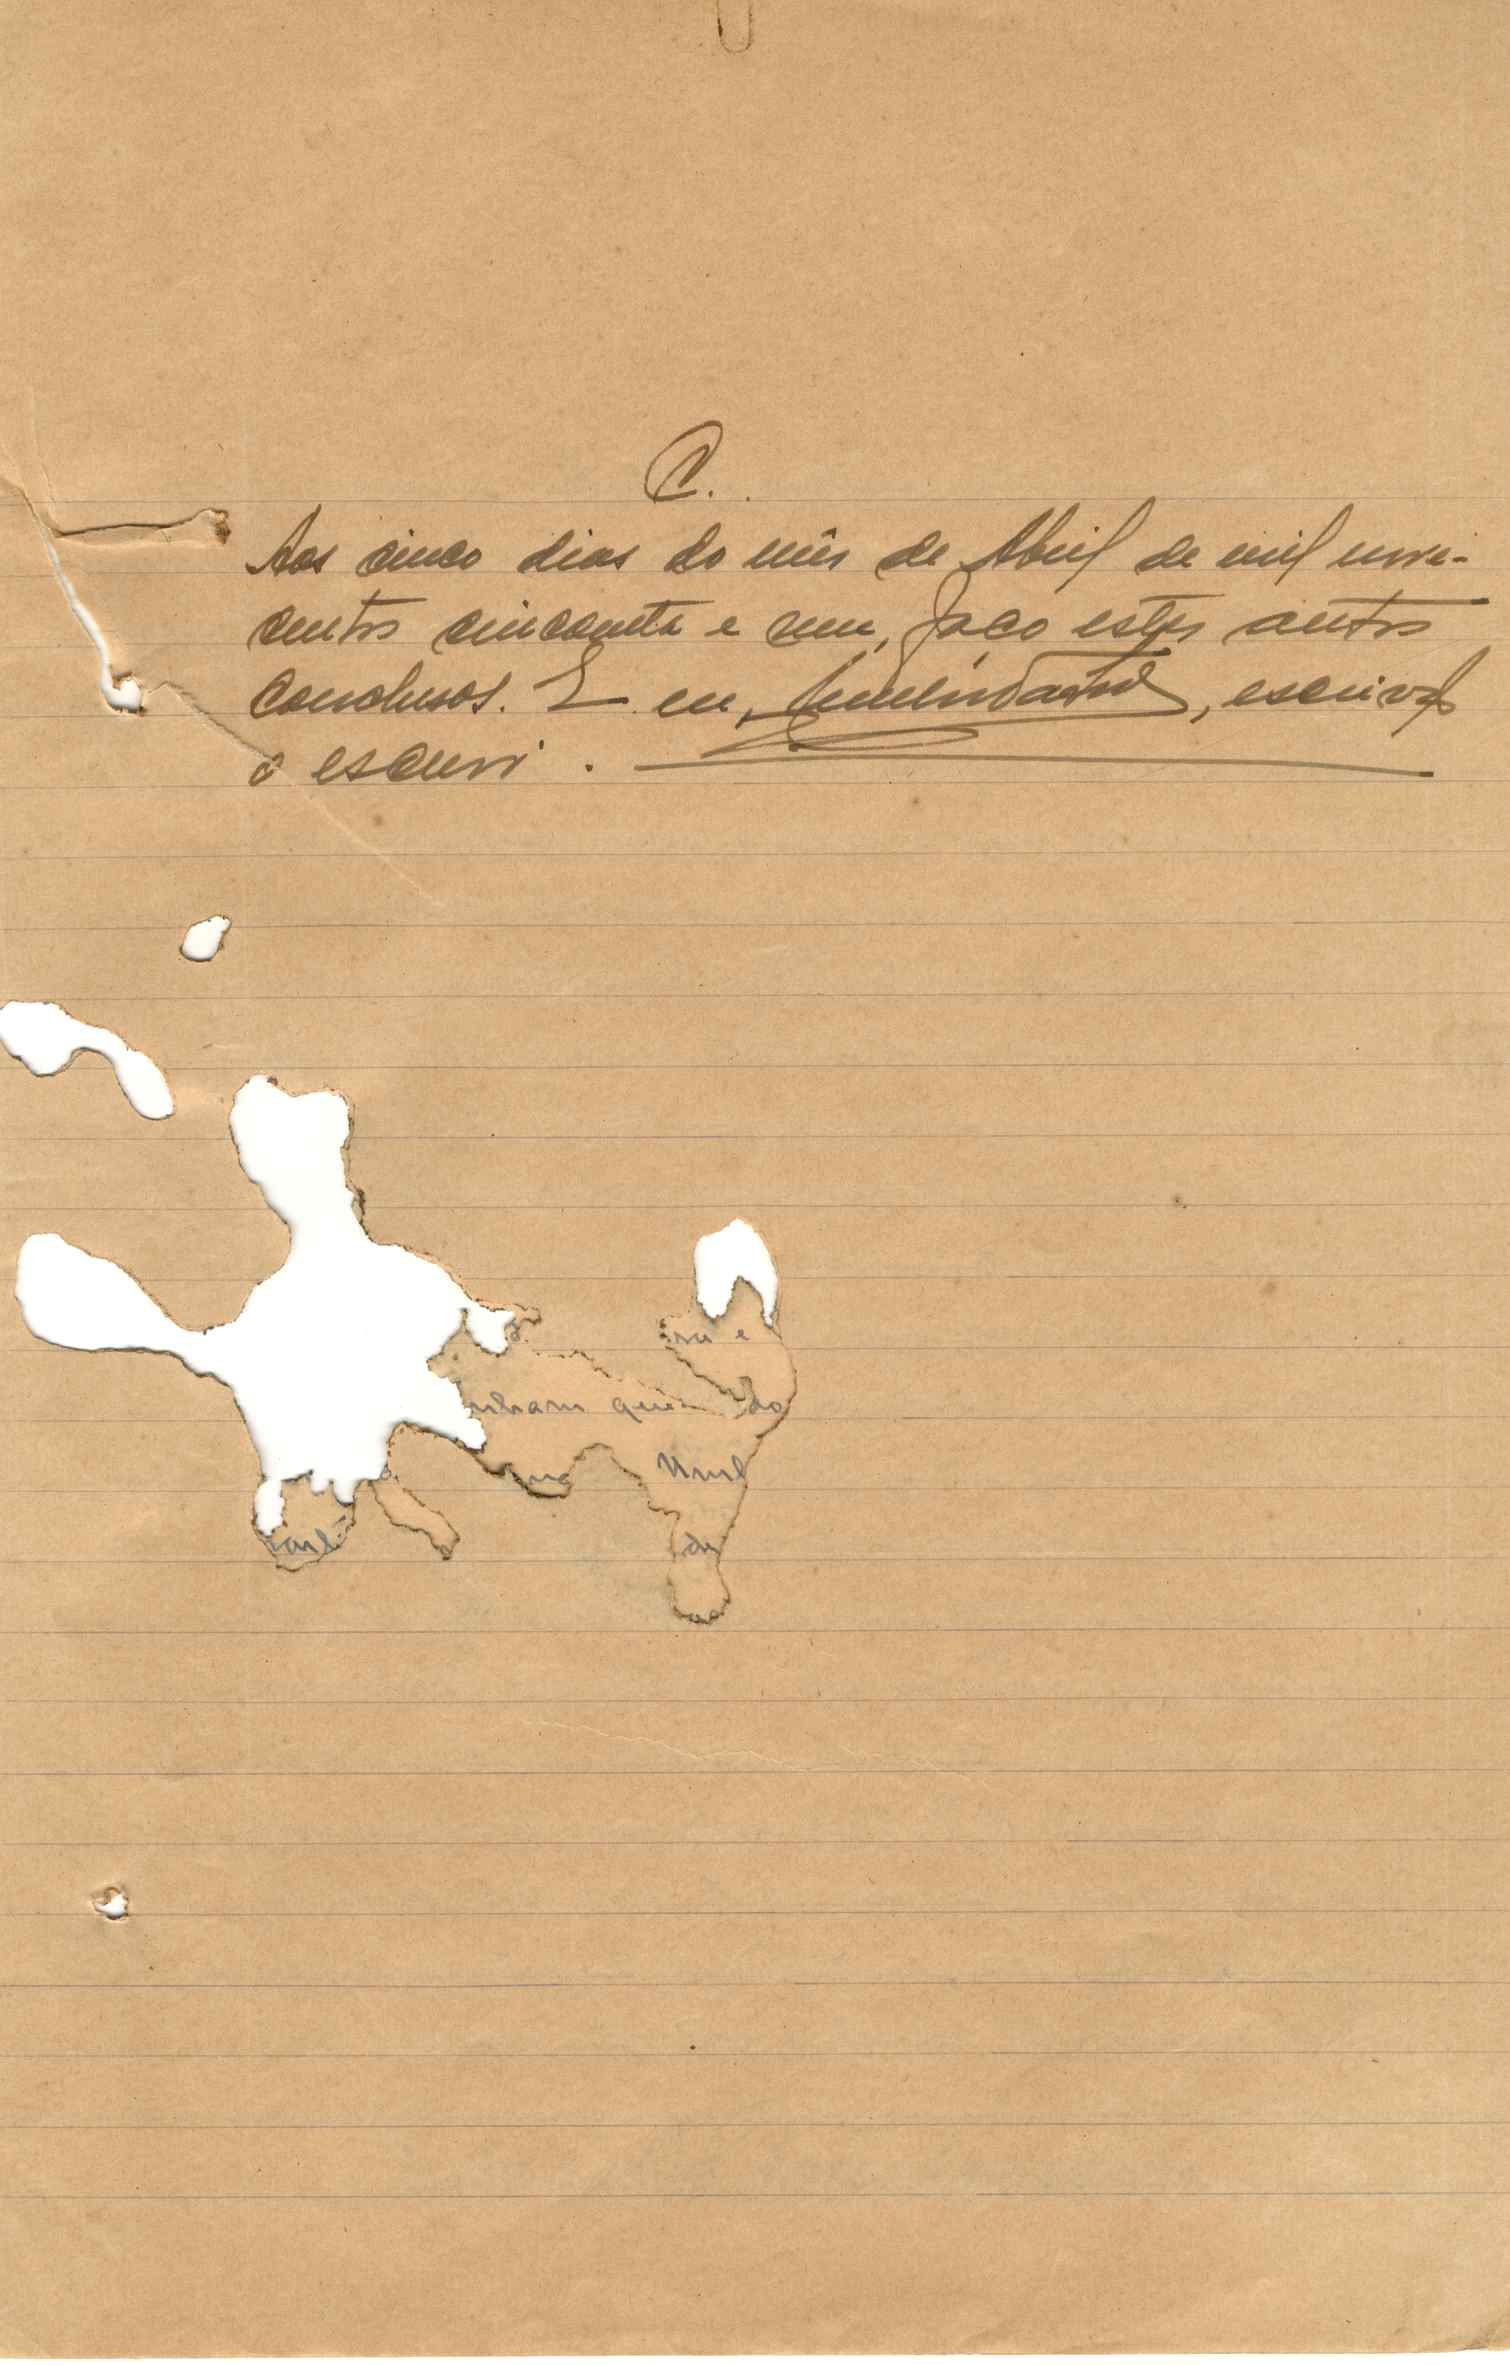 C.
Aos cinco dias do mês de Abril de mil nove-
centos cincoenta e um, faço estes autos
conclusos. E eu, escrivão
o escrevi.
e
nham que do
de